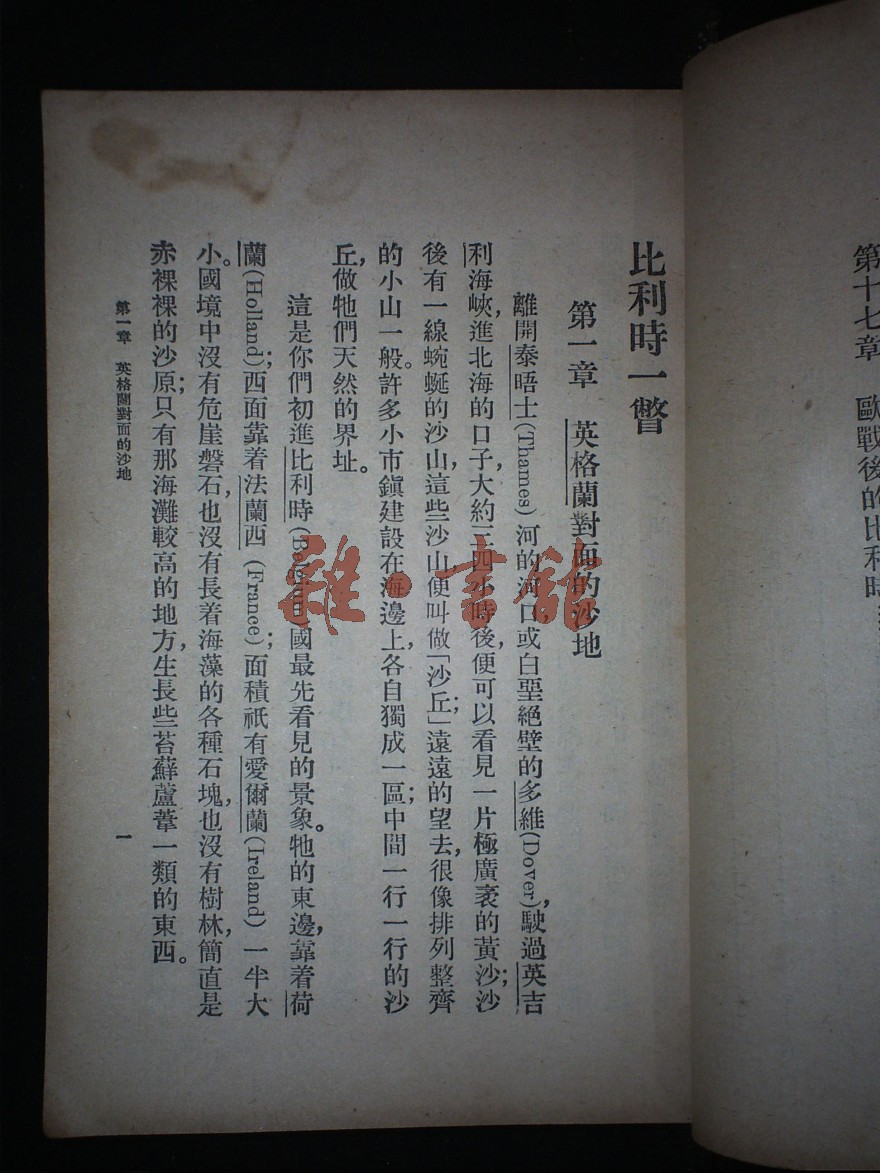 第十七章　歐戰後的比利時
比利時一瞥
第一章　英格蘭對面的沙地
離開泰晤士(Thames)河的河口，或白堊絕壁的多維(Dover)，駛過英吉
利海峽，進北海的口子，大約三四小時後，便可以看見一片極廣袤的黃沙；沙
後有一線蜿蜒的沙山，這些沙山便叫做「沙丘」；遠遠的望去，很像排列整齊
的小山一般。許多小市鎮建設在海邊上，各自獨成一區；中間一行一行的沙
丘，做牠們天然的界址。
這是你們初進比利時(Belgium)國最先看見的景象。牠的東邊，靠着荷
蘭(Holland)；西面靠着法蘭西(France)；面積祇有愛爾蘭(Ireland)一半大
小。國境中沒有危崖磐石，也沒有長着海藻的各種石塊，也沒有樹林，簡直是
赤裸裸的沙原；只有那海灘較高的地方，生長些苔蘚蘆葦一類的東西。
第一章　英格蘭對面的沙地
一
雜·書館